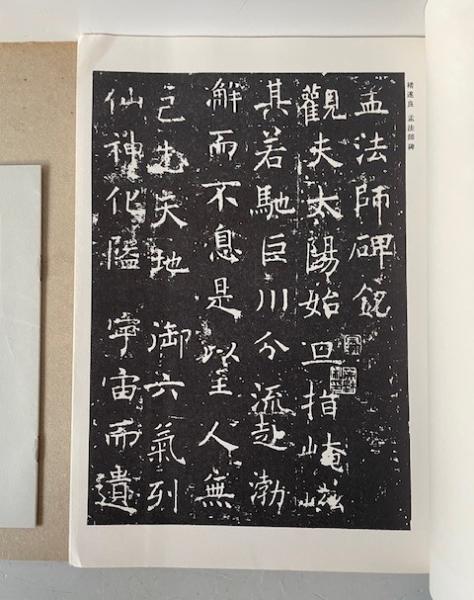 褚遂良 孟法師碑
孟法師碑銘
觀夫太陽始旦指崦嵫
其若馳巨川分流赴渤
澥而不息是以至人無
己先天地 御六氣列
仙神化隘 宇宙而遺